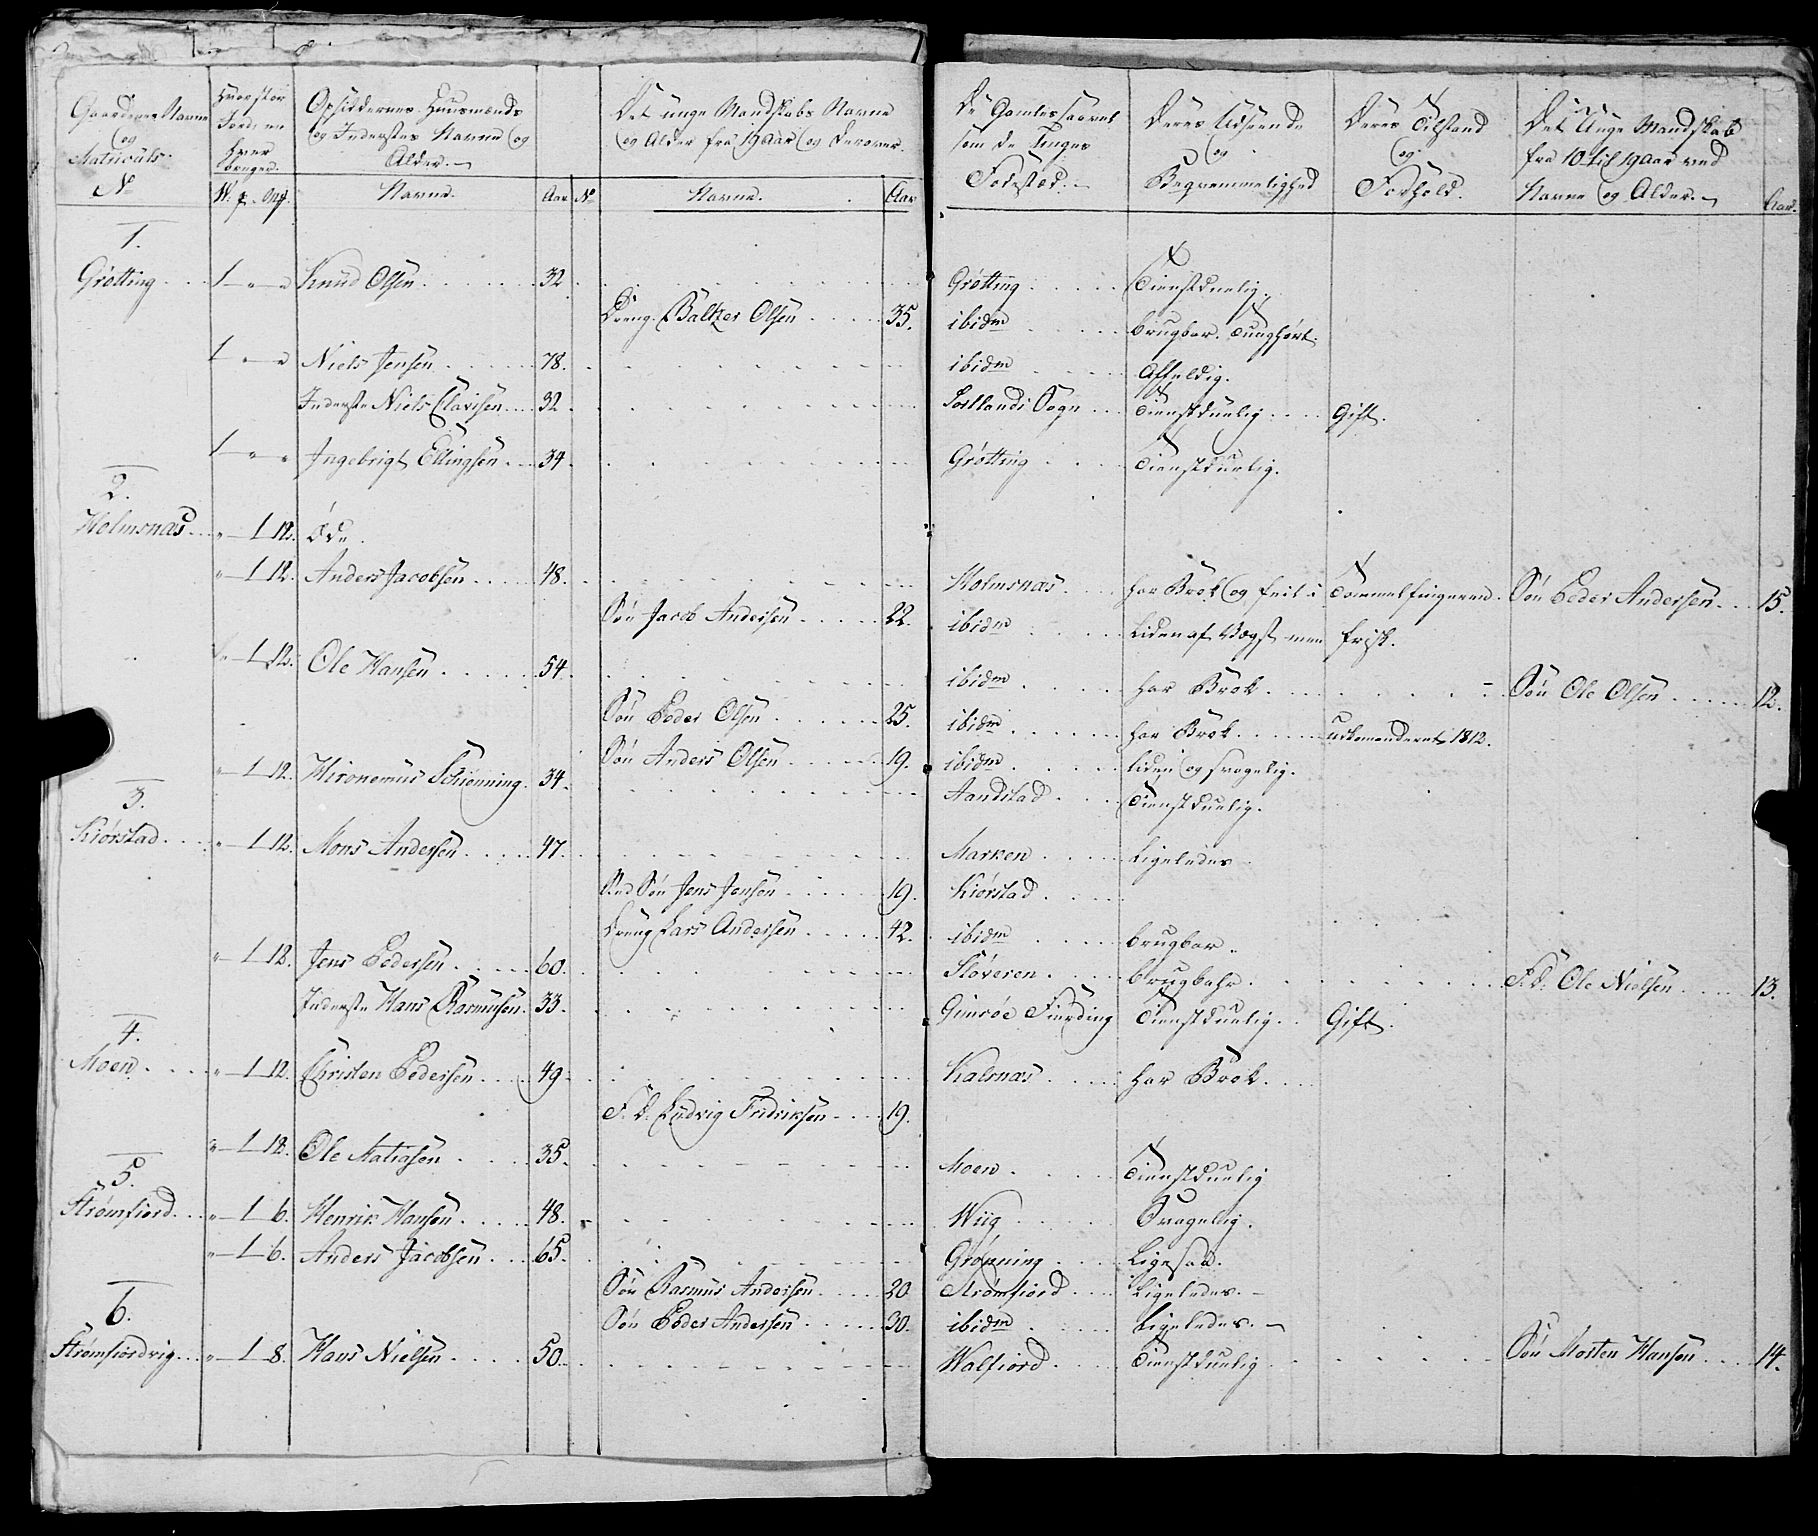 Gaardenes Navne og Matriculs No
Hvor stor Jord en hver bruger.
W. p. Mk.
Opsiddernes Huusmænds og Inderstes Navne og Alder.
Navne. Aar No
Det unge Mandskabs Navne og Alder fra 19 Aar og derover.
Navne. Aar
De Gamles saavel som de Unges Fødested.
Deres Udseende og Beqvemmelighed
Deres Tilstand og Forhold.
Det Unge Mandskab fra 10 til 19 Aar ved Navne og Alder. Aar.
1.
Grøtting 1 " " Knud Olsen 32. Grøtting Tienstduelig.
Dreng. Baltzer Olsen 35. ibidm brugbar. Tunghørt.
1 " " Niels Jensen 78. ibidm Affeldig.
Inderste Niels Clavisen 32. Sogn Tienstduelig Gift.
1 " " Ingebrigt Ellingsen 34. Grøtting Tienstduelig.
2.
Holmsnæs " 1 12. Øde.
" 1 12. Anders Jacobsen 48. Holmsnæs har Brok og feil i Tommelfingeren. Søn Peder Andersen 15.
Søn Jacob Andersen 22. ibidm Liden af Vægst men frisk.
" 1 12. Ole Hansen 54. ibidm har Brok. Søn Ole Olsen 12.
Søn Peder Olsen 25. ibidm har Brok udkomanderet 1812.
Søn Anders Olsen 19. ibidm liden og svagelig.
" 1 12. Hironemus Schiønning. 34. Aandstad Tienstduelig.
3.
Kiørstad " 1 12. Mons Andersen 47. Marken Ligeledes
Søn Jens Jensen 19. Kiørstad
Dreng Lars Andersen 42. ibidm brugbar.
" 1 12. Jens Pedersen 60. Sløveren brugbahr. F. d. Ole Nielsen 13.
Inderste Hans Rasmusen. 33. Gimsøe Fierding Tienstduelig. Gift.
4.
Moen " 1 12. Christen Pedersen 49. Kalsnæs har Brok.
F. d. Ludvig Fridriksen 19.
" 1 12. Ole Matiasen 35. Moen Tienstduelig
5.
Strømfiord " 1 6. Henrik Hansen 48. Wiig Svagelig.
" 1 6. Anders Jacobsen 65. Grønning Ligesaa.
Søn Rasmus Andersen 20 Strømfiord Ligeledes.
Søn Peder Andersen 30. ibidm Ligeledes.
6.
Strømfiordvig " 1 8. Hans Nielsen 50. Walfiord Tienstduelig Søn Morten Hansen 14.